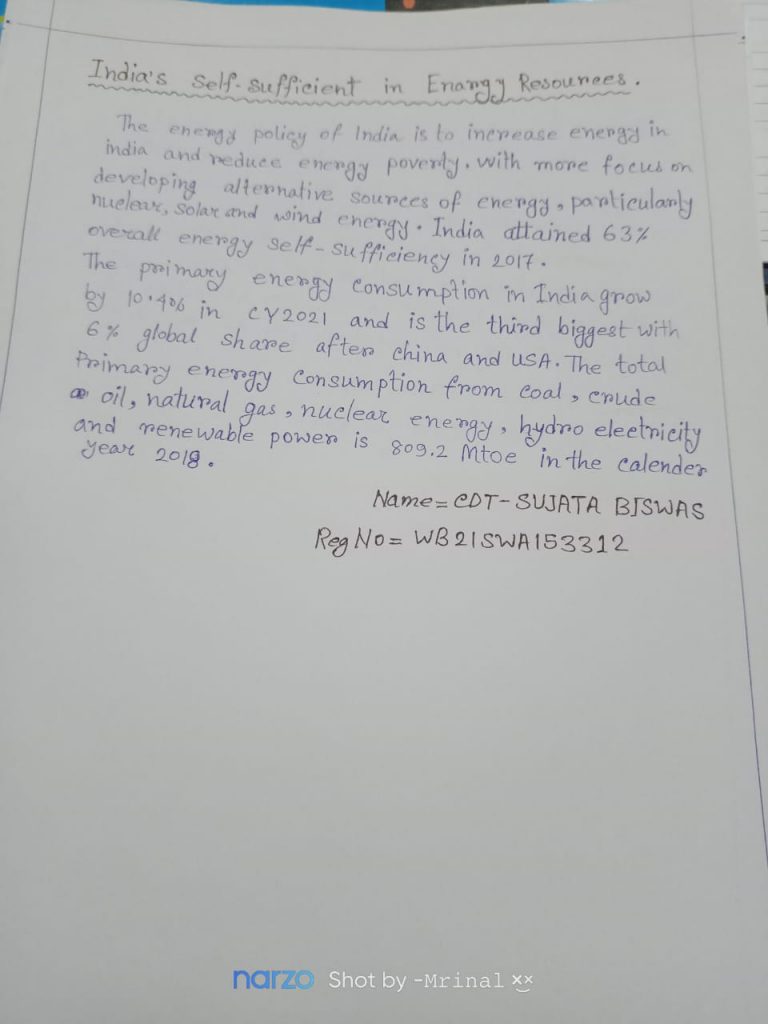 India's Self-sufficient in Enargy Resources.
The energy policy of India is to increase energy in
india and reduce energy poverty. with more focus on
developing alternative sources of energy, particularly
nuclear, solar and wind energy. India attained 63%
overall energy self-sufficiency in 2017.
The primary energy consumption in India grow
by 10.4% in CY2021 and is the third biggest with
6% global share after china and USA. The total
Primary energy consumption from coal, crude
oil, natural gas, nuclear energy, hydro electricity
and renewable power is 809.2 Mtoe in the calender
year 2018.
Name= CDT-SUJATA BISWAS
Reg No= WB21SWA153312
narzo Shot by -Mrinal